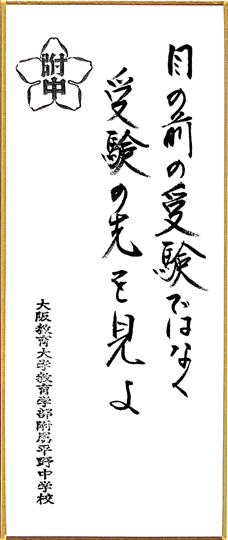 目の前の受験ではなく
受験の先を見よ
附中
大阪教育大学教育学部附属平野中学校